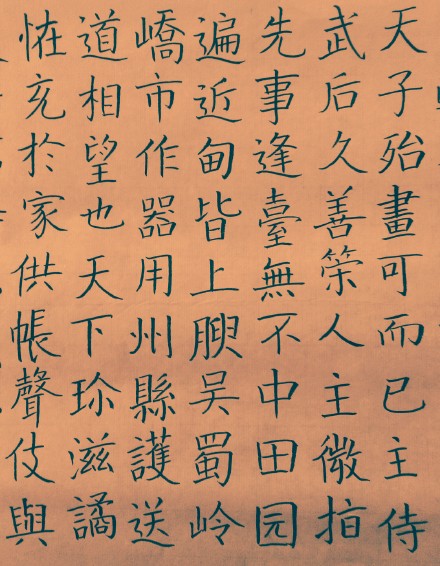 天子殆畫可而已主侍
武后久善策人主微指
先事逢臺無不中田园
遍近甸皆上腴吴蜀岭
嶠市作器用州縣護送
道相望也天下珎滋譎
恠充於家供帳聲伎與